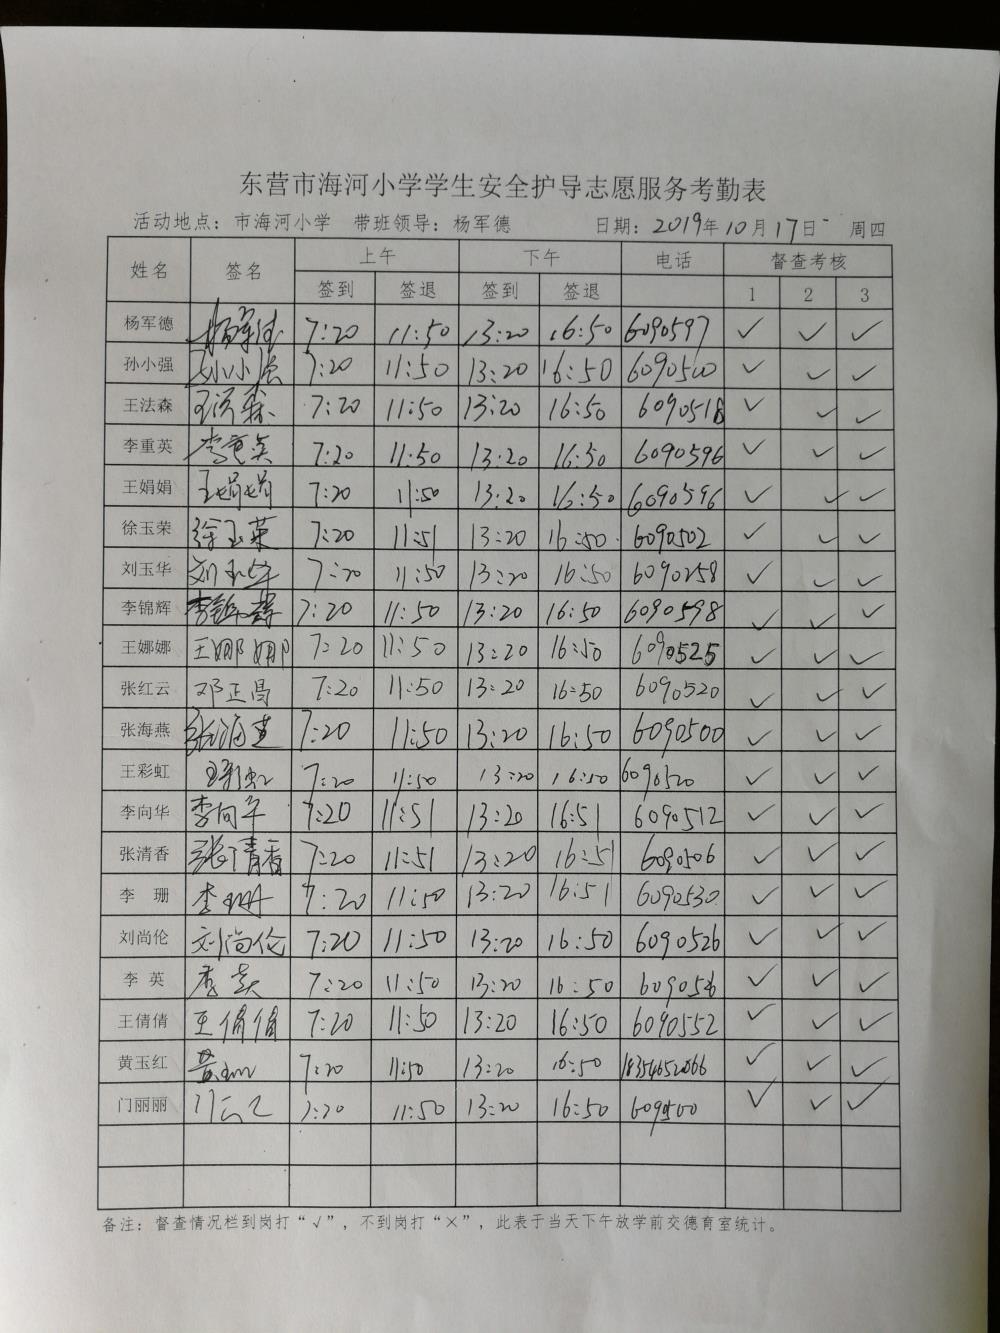 东营市海河小学学生安全护导志愿服务考勤表
活动地点：市海河小学 带班领导：杨军德 日期：2019年10月17日 周四
姓名 签名 上午 下午 电话 督查考核
签到 签退 签到 签退 1 2 3
杨军德 杨军德 7:20 11:50 13:20 16:50 6090597 ✓ ✓ ✓
孙小强 孙小强 7:20 11:50 13:20 16:50 6090500 ✓ ✓ ✓
王法森 王法森 7:20 11:50 13:20 16:50 6090518 ✓ ✓ ✓
李重英 李重英 7:20 11:50 13:20 16:50 6090596 ✓ ✓ ✓
王娟娟 王娟娟 7:20 11:50 13:20 16:50 6090596 ✓ ✓ ✓
徐玉荣 徐玉荣 7:20 11:51 13:20 16:50 6090502 ✓ ✓ ✓
刘玉华 刘玉华 7:20 11:50 13:20 16:50 6090258 ✓ ✓ ✓
李锦辉 李锦辉 7:20 11:50 13:20 16:50 6090598 ✓ ✓ ✓
王娜娜 王娜娜 7:20 11:50 13:20 16:50 6090525 ✓ ✓ ✓
张红云 邓正昌 7:20 11:50 13:20 16:50 6090520 ✓ ✓ ✓
张海燕 张海燕 7:20 11:50 13:20 16:50 6090500 ✓ ✓ ✓
王彩虹 王彩虹 7:20 11:50 13:20 16:50 6090520 ✓ ✓ ✓
李向华 李向华 7:20 11:51 13:20 16:51 6090512 ✓ ✓ ✓
张清香 张清香 7:20 11:51 13:20 16:51 6090506 ✓ ✓ ✓
李珊 李珊 7:20 11:50 13:20 16:51 6090530 ✓ ✓ ✓
刘尚伦 刘尚伦 7:20 11:50 13:20 16:50 6090526 ✓ ✓ ✓
李英 李英 7:20 11:50 13:20 16:50 ✓ ✓ ✓
王倩倩 王倩倩 7:20 11:50 13:20 16:50 6090552 ✓ ✓ ✓
黄玉红 7:20 11:50 13:20 16:50 ✓ ✓ ✓
门丽丽 7:20 11:50 13:20 16:50 ✓ ✓ ✓
备注：督查情况栏到岗打“√”，不到岗打“×”，此表于当天下午放学前交德育室统计。